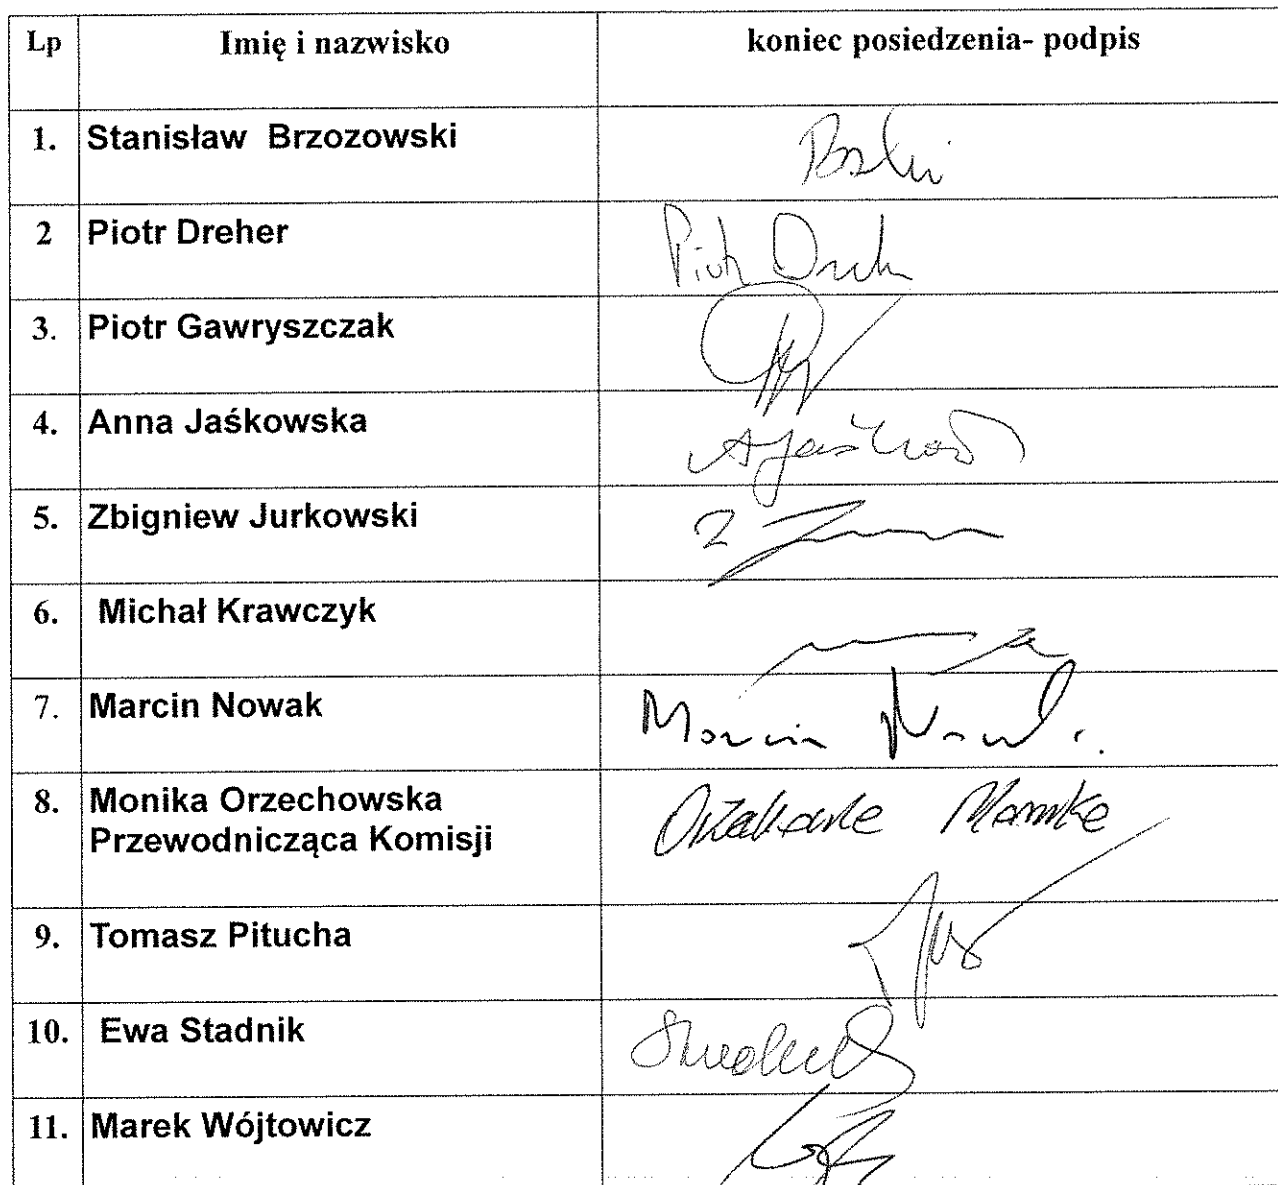 Lp Imię i nazwisko koniec posiedzenia- podpis
1. Stanisław Brzozowski
2 Piotr Dreher Piotr
3. Piotr Gawryszczak
4. Anna Jaśkowska
5. Zbigniew Jurkowski
6. Michał Krawczyk
7. Marcin Nowak Marcin Nowak
8. Monika Orzechowska
Przewodnicząca Komisji
9. Tomasz Pitucha
10. Ewa Stadnik
11. Marek Wójtowicz